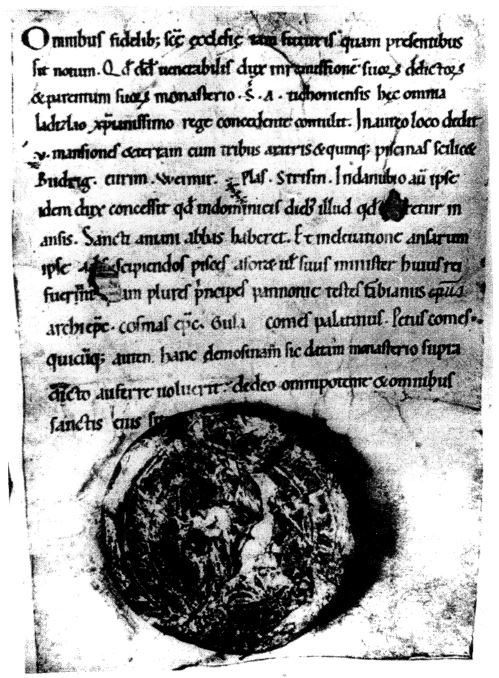 Omnibus fidelib; scę ęcclesię tam futuris quam presentibus
sit notum. Qđ dđ venerabilis dux in remissionē suoꝝ delictoꝝ
& parentum suoꝝ monasterio . S̄ . A . tichoniensis hec omnia
ladizlao xp̄ianissimo rege concedente contulit. In aureo loco dedit
.v. mansiones & terram cum tribus aratris & quinq; piscinas scilic&
Budrig. eurim. Weimir. Plas. Strisin. In danubio aū ipse
idem dux concessit qđ in dominicis dieb; illud qđ etur in
ansis. Sancti aniani abbas haberet. Et in elevatione ansarum
ipse suscipiendos pisces suus minister huius rei
plures p̄ncipes pannonie testes fabianus ep̄us
archiep̄c. cosmas ep̄c. Gula comes palatinus. Petus comes.
quicūq; autem hanc elemosinam sic datam monasterio supra
dicto auferre voluerit: de deo omnipotente & omnibus
sanctis eius